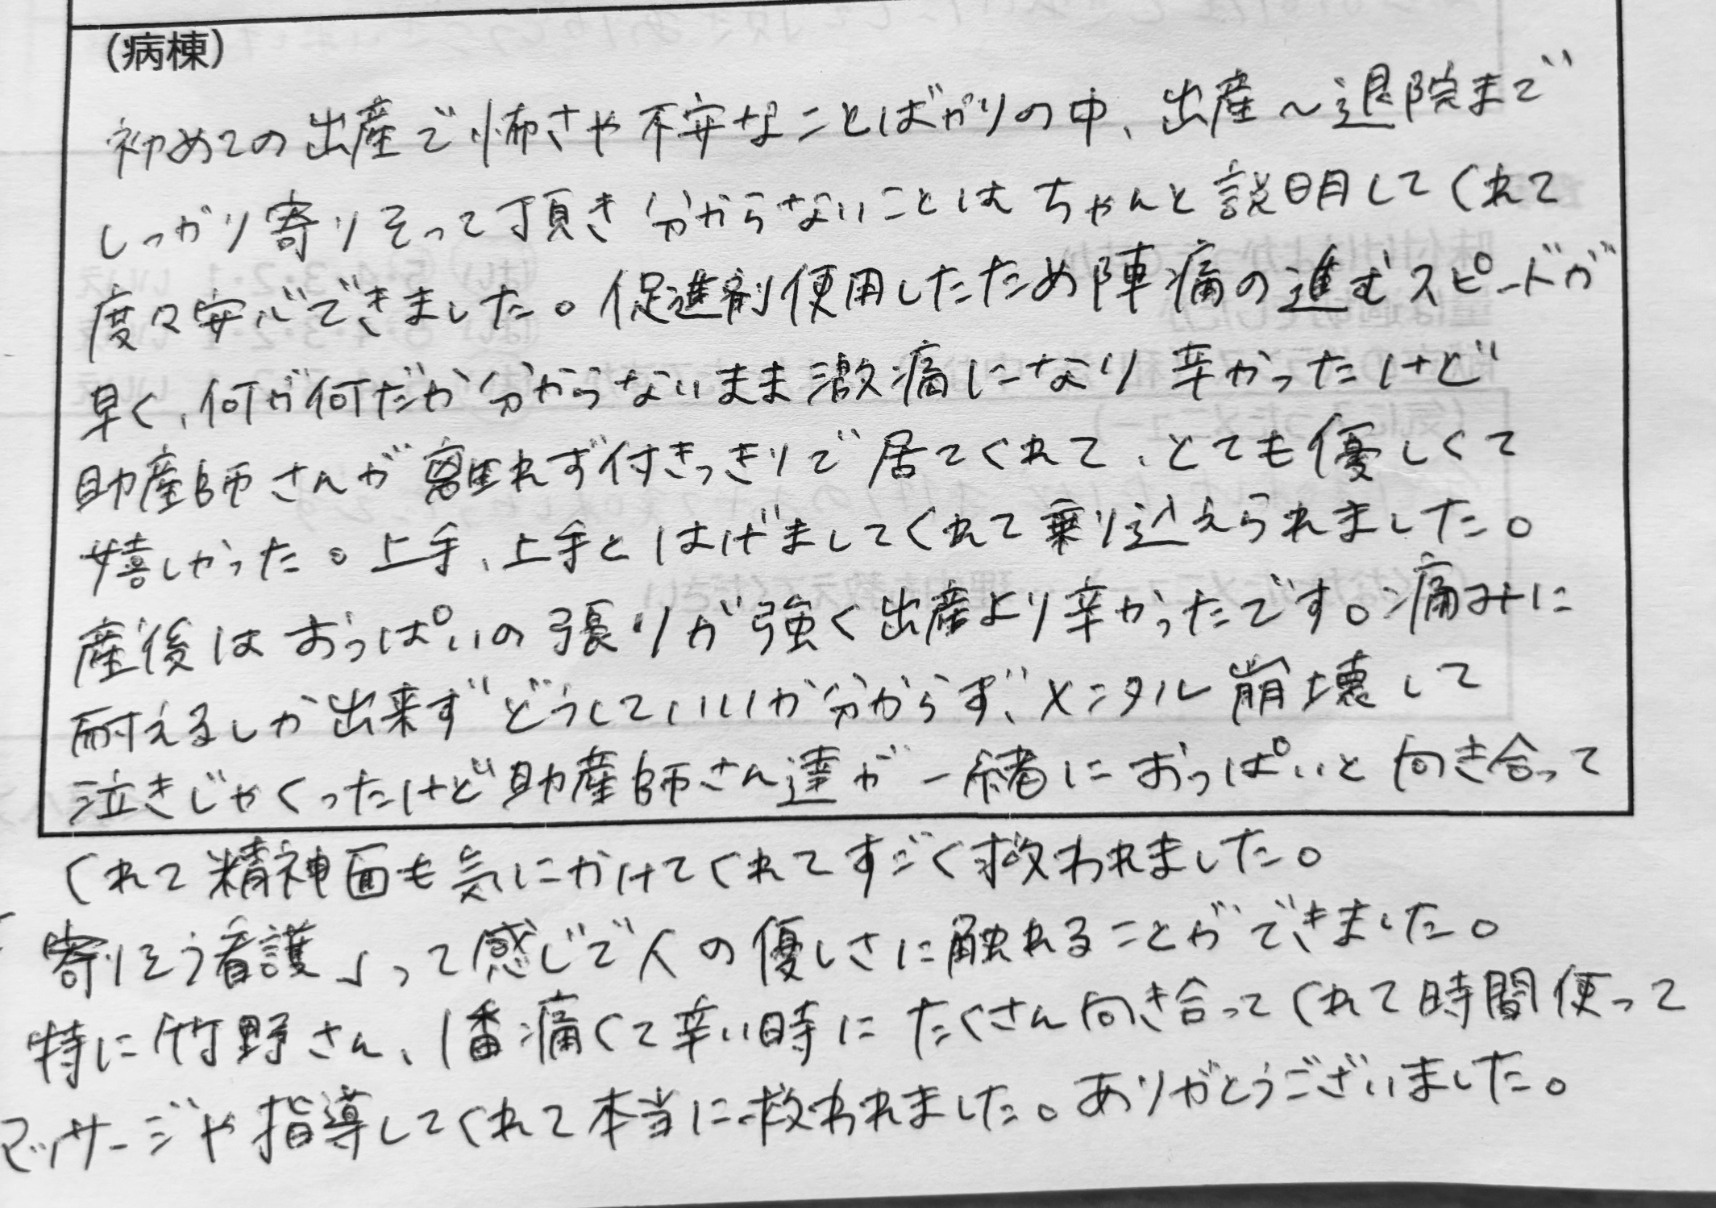 （病棟）
初めての出産で怖さや不安なことばかりの中、出産〜退院まで
しっかり寄りそって頂き分からないことはちゃんと説明してくれて
度々安心できました。促進剤使用したため陣痛の進むスピードが
早く、何が何だか分からないまま激痛になり辛かったけど
助産師さんが離れず付きっきりで居てくれて、とても優しくて
嬉しかった。上手、上手とはげましてくれて乗り込えられました。
産後はおっぱいの張りが強く出産より辛かったです。痛みに
耐えるしか出来ずどうしていいか分からず、メンタル崩壊して
泣きじゃくったけど助産師さん達が一緒におっぱいと向き合って
くれて精神面も気にかけてくれてすごく救われました。
「寄りそう看護」って感じで人の優しさに触れることができました。
特に竹野さん、1番痛くて辛い時にたくさん向き合ってくれて時間使って
マッサージや指導してくれて本当に救われました。ありがとうございました。